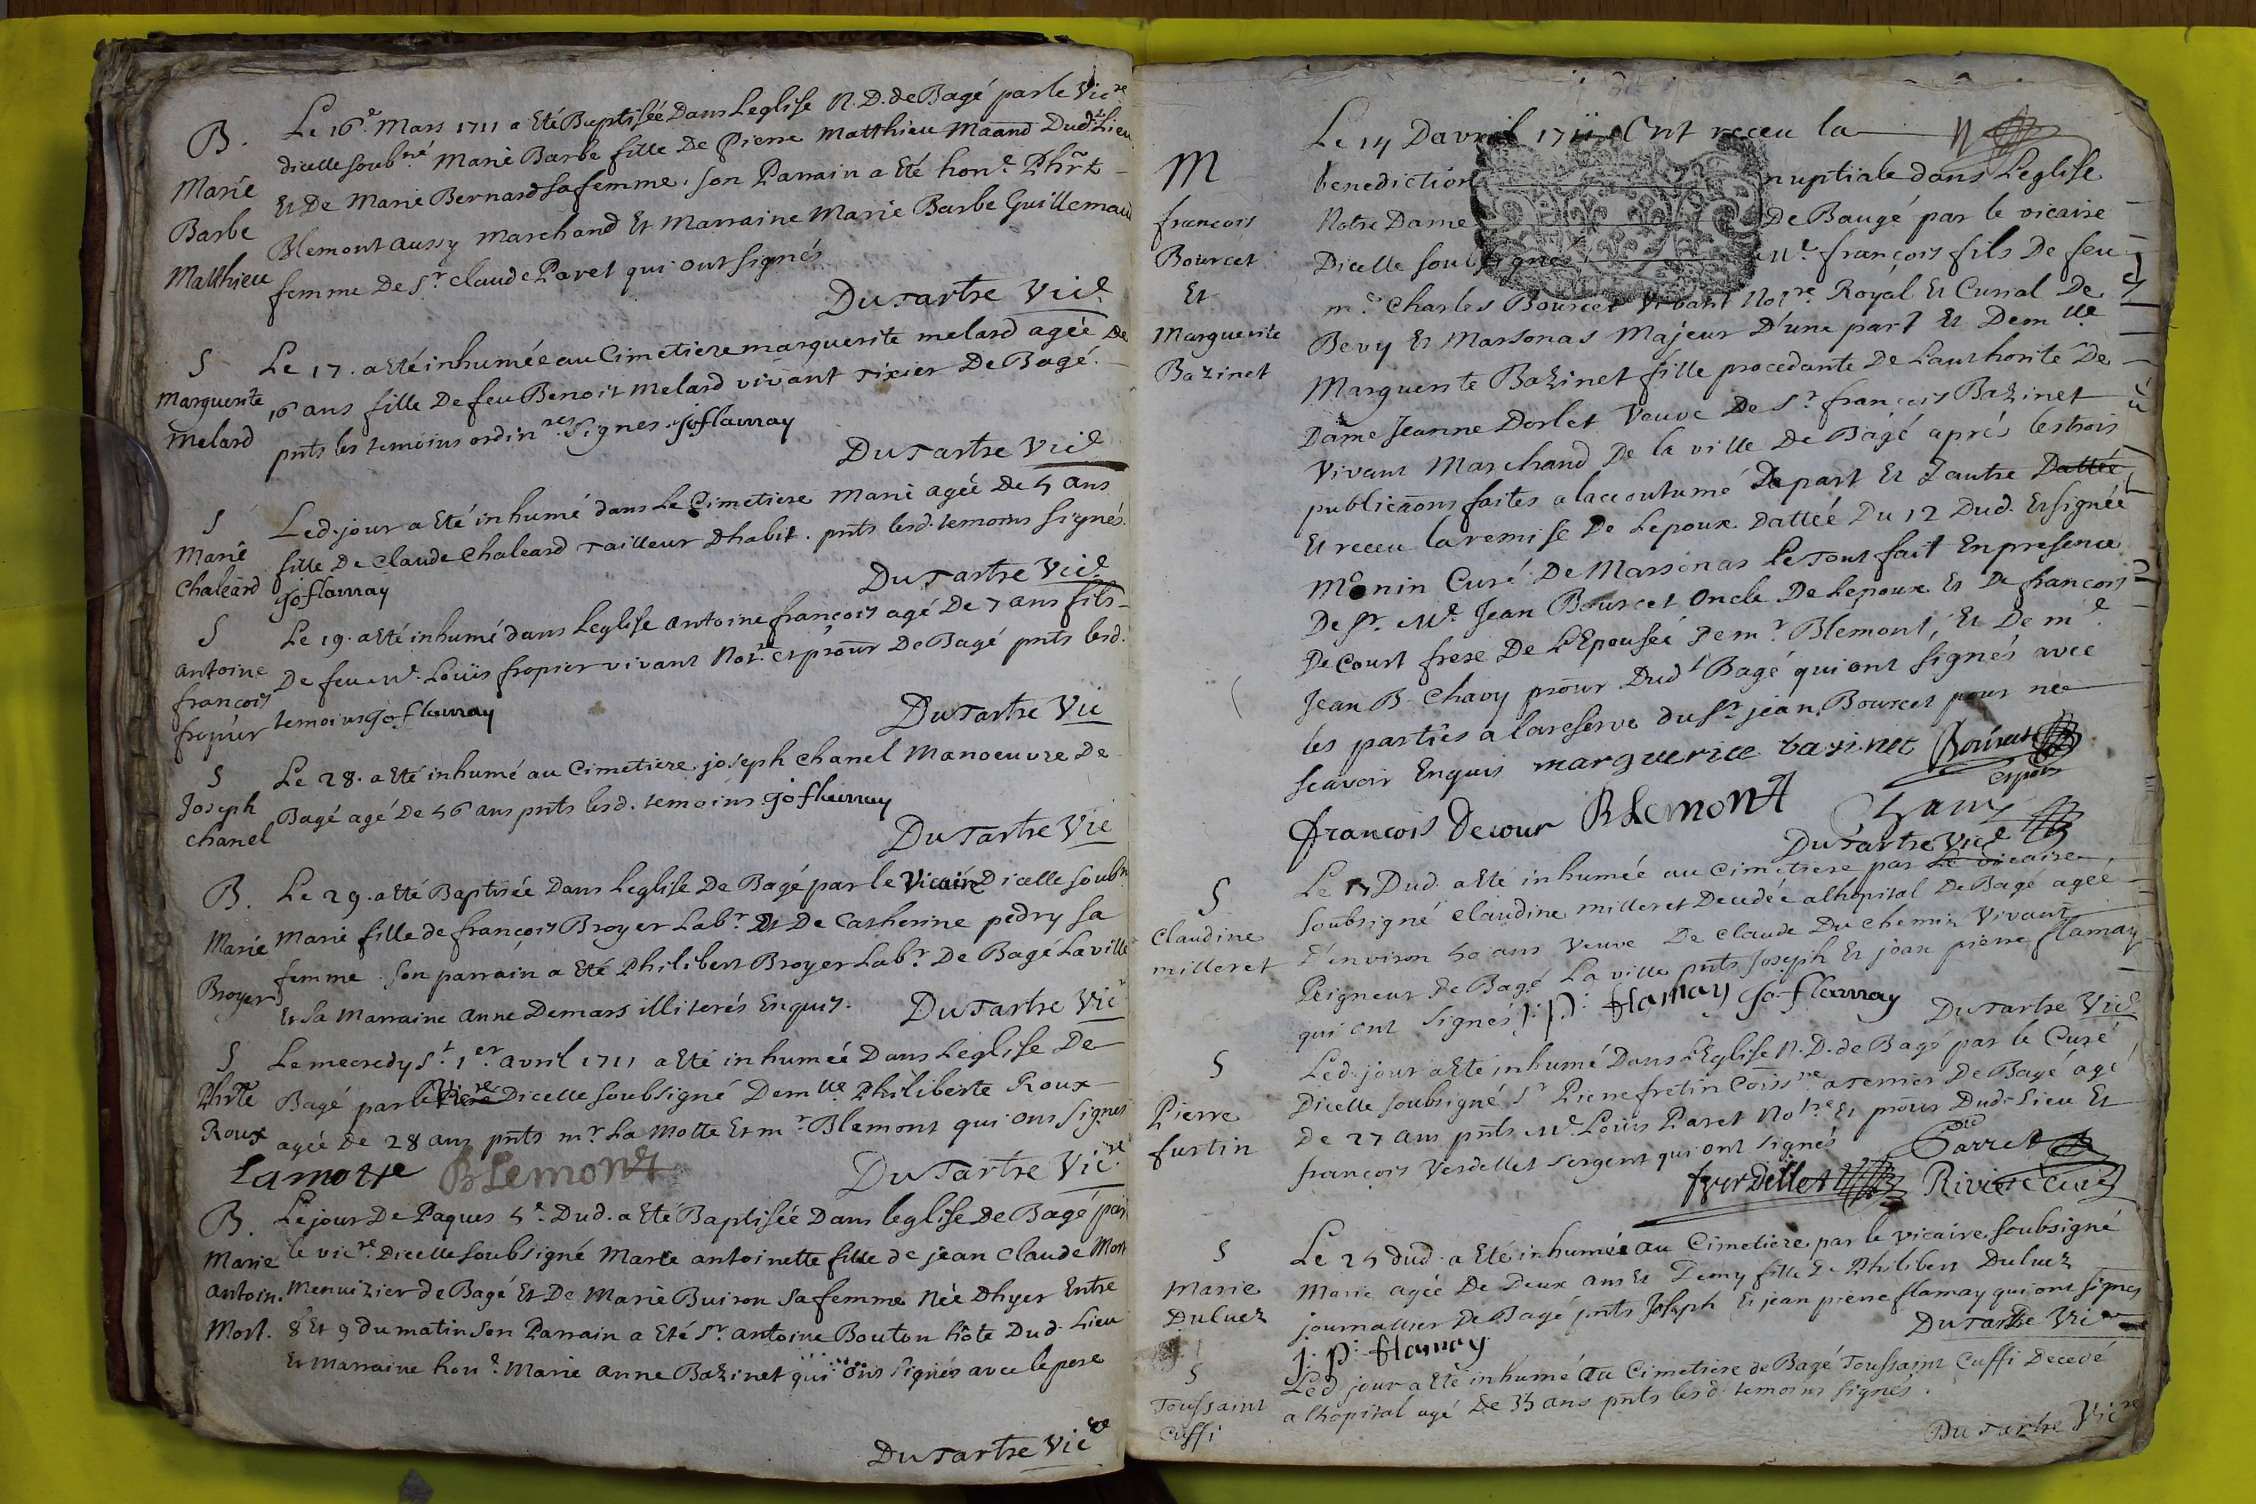 B.
Marie
Barbe
Matthieu
Le 16e Mars 1711 a Eté Baptisée Dans Leglise N. D. de Bagé par le Vicre
dicelle soubné Marie Barbe fille De Pierre Matthieu Mãand Dudt Lieu
Et De Marie Bernard sa femme. son Parrain a Eté hone. Phr̃t
Blemont aussy marchand Et Marraine Marie Barbe Guillemaud
femme De Sr. claude Paret qui ont signés
DuTartre Vice
S
marguerite
melard
Le 17. a Eté inhumée au Cimetiere marguerite melard agée De
16 ans fille De feu Benoit melard vivant tixier De Bagé.
pnts les temoins ordinres signes. jo flamay
DuTartre Vice
S
Marie
Chaleard
Led. jour a Eté inhumé dans Le Cimetiere Marie agée de 5 ans
fille De claude Chaleard Tailleur Dhabit. pnts lesd. temoins signés.
jo flamay
DuTartre Vice
S
antoine
francois
fropier
Le 19. a Eté inhumé dans Leglise antoine francois agé De 7 ans fils
De feu Me. Louis fropier vivant Notre. et prõur De Bagé pnts lesd.
temoins jo flamay
DuTartre Vic
S
Joseph
chanel
Le 28. a Eté inhumé au Cimetiere joseph chanel Manoeuvre De
Bagé agé De 56 ans pnts lesd. temoins jo flamay
DuTartre Vic
B.
Marie
Broyer
Le 29. a Eté Baptisée Dans Leglise De Bagé par le Vicaire Dicelle soubn
Marie fille de francois Broyer Labr. Et De Catherine pedry sa
femme. son parrain a Eté Philibert Broyer Labr. De Bagé La ville
Et sa Marraine anne Demars illiterés Enquis. DuTartre Vicr
S
Phrte
Roux
Le mecredy St. 1er avril 1711 a Eté inhumée Dans Leglise De
Bagé par le Vicre Dicelle soubsigné Demlle Philiberte Roux
agée de 28 ans pnts mr. La Motte Et mr. Blemont qui ont signes
Lamotte BLemont DuTartre Vicre
B.
Marie
antoin.
Mort.
Le jour De Paques 5e. Dud. a Eté Baptisée Dans leglise de Bagé par
le vicre. Dicelle soubsigné Marie antoinette fille de jean claude Mort
Menuizier de Bagé Et De Marie Buiron sa femme Née Dhyer Entre
8 Et 9 du matin son Parrain a Eté Sr. antoine Bouton hôte Dud. Lieu
Et Marraine hone. Marie anne Bazinet qui ont signés avec le pere
DuTartre Vicre
M
francois
Bourcet
Et
Marguerite
Bazinet
Le 14 Davril 1711 Ont receu la
benediction nuptiale dans Leglise
Notre Dame De Baugé par le vicaire
Dicelle soubsigné Me. françois fils De feu
me. Charles Bourcet vivant Notre. Royal Et Curial De
Bevy Et Marsonas Majeur D'une part Et Demlle
Marguerite Bazinet fille procedante De Lauthorité De
Dame Jeanne Dorlet Veuve De Sr. francois Bazinet
Vivant Marchand De la ville De Bâgé aprés les trois
publicãons faites a laccoutumé De part Et Dautre Dattée
Et receu la remise De Lepoux Dattée Du 12 Dud. Et signée
Monin Curé De Marsonas Le Tout fait En presence
De Sr. Me. Jean Bourcet Oncle De Lepoux Et De francois
De Court frere De L'Epousée De mr. Blemont, Et De me.
Jean B. Chavy prõur Dudt Bagé qui ont signés avec
les parties a la reserve du Sr. jean Bourcet pour ne
scavoir Enquis marguerite bazinet Bourcet
Epoux
francois Decour BLemont Chavy
DuTartre Vice
S
Claudine
milleret
Le 15 Dud. a Eté inhumée au Cimetiere par Le vicaire
soubsigné Claudine milleret Decedée a lhopital De Bagé agée
D'environ 50 ans veuve De Claude Du Chemin Vivant
Peigneur De Bagé La ville pnts Joseph Et jean pierre flamay
qui ont signés j. p. flamay jo flamay
DuTartre Vice
S
Pierre
furtin
Led. jour a Eté inhumé Dans L'Eglise N. D. de Bagé par le Curé
Dicelle soubsigné Sr Pierre fretin Coissre. a Terrier De Bagé agé
de 27 ans pnts Me. Louis Paret Notre. Et prõur Dud. Lieu Et
francois Verdellet sergent qui ont signés Parret
f verDellet Riviere Curé
S
Marie
Duluez
Le 25 dud. a Eté inhumée au Cimetiere par le vicaire soubsigné
Marie agée De Deux ans Et Demy fille De Philibert Duluez
journallier De Bagé pnts Joseph Et jean pierre flamay qui ont signes
j. p. flamay
DuTartre Vicr
S
Toussaint
Cuffi
Led. jour a Eté inhumé Au Cimetiere de Bagé Toussaint Cuffi Decedé
a lhopital agé De 35 ans pnts lesd. temoins signés.
DuTartre Vicre